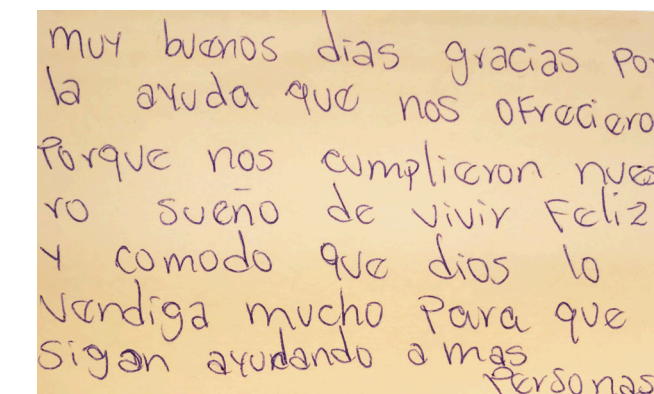 muy buenos dias gracias por
la ayuda que nos ofreciero
Porque nos cumplieron nues
ro sueño de vivir Feliz
y comodo que dios lo
vendiga mucho Para que
sigan ayudando a mas
Personas